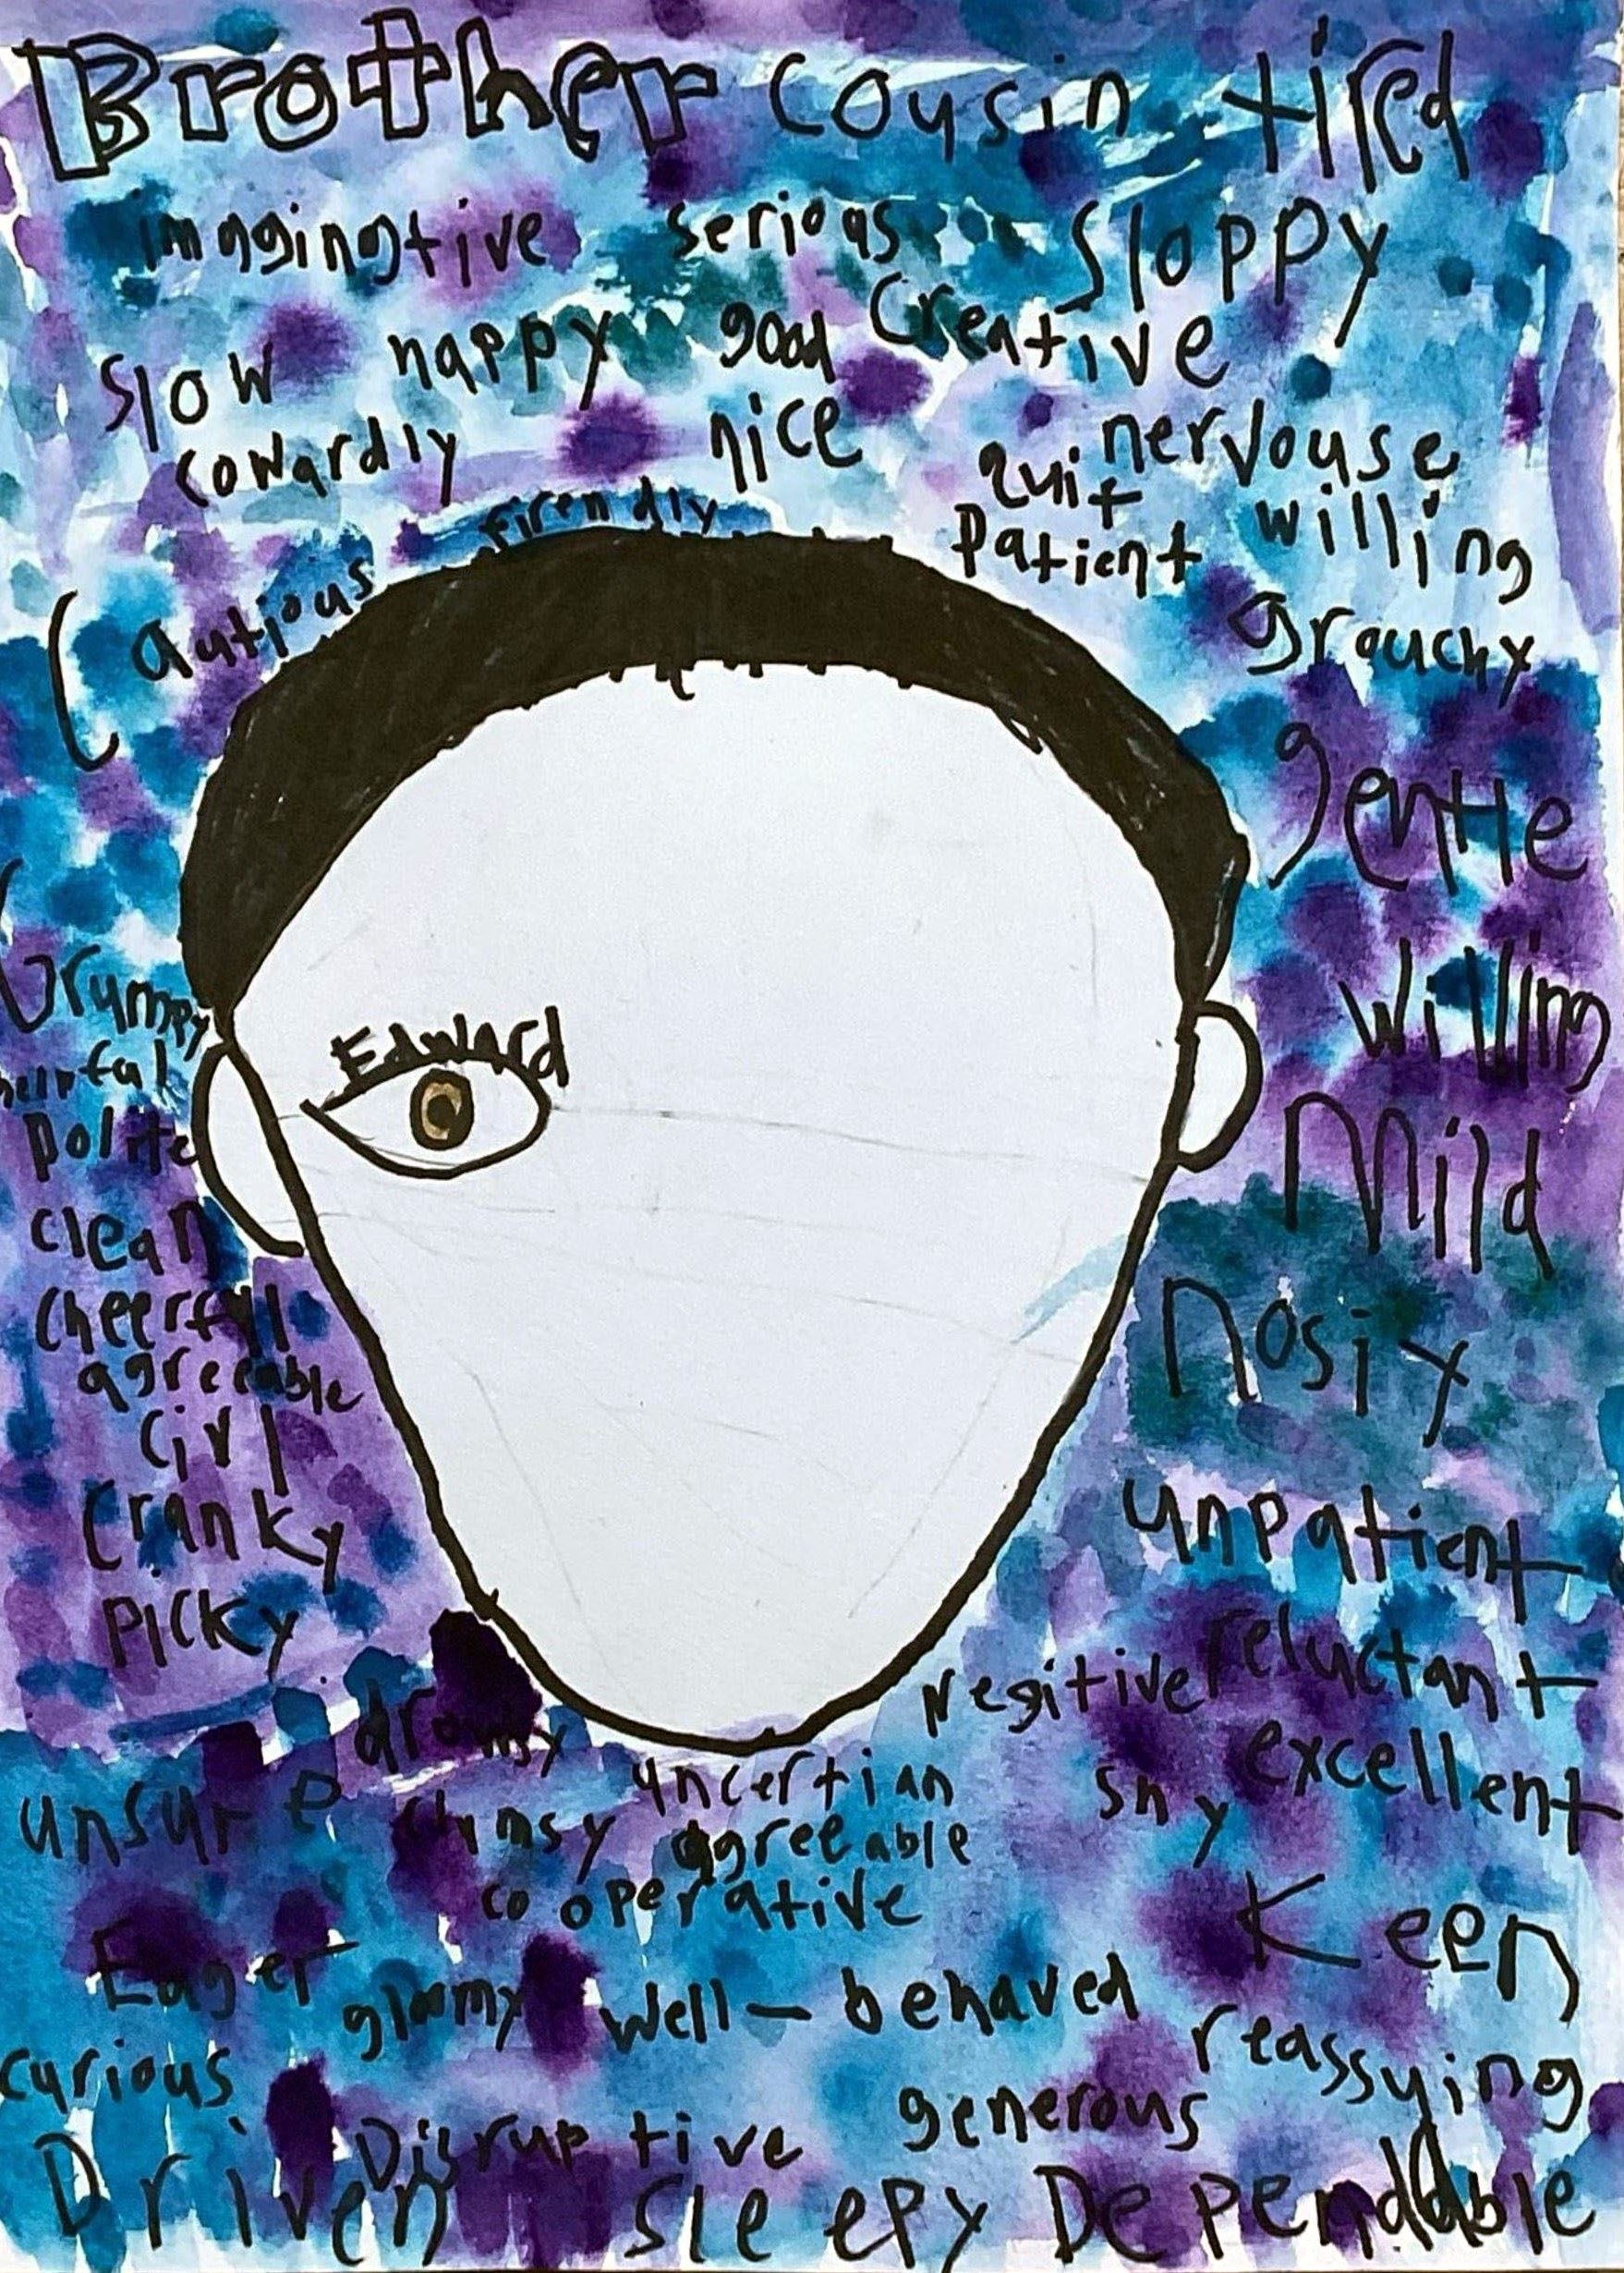 Brother cousin tired
imagingtive serious Sloppy
Slow happy good Creative
cowardly nice nervouse
quit willing
firendly Patient
Cautious grouchy
gentle
Grumpy willing
Edward
polite Mild
clean
cheerful nosiy
agreeable
Civl
Cranky unpatient
Picky reluctant
negitive
drowsy excellent
unsure clumsy uncertian shy
agreeable
cooperative Keen
Eager gloomy well-behaved
curious reassuying
Disruptive generous
Driven Sleepy Dependable